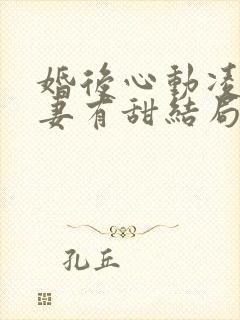 婚後心動凌
妻有甜結局
孔丘